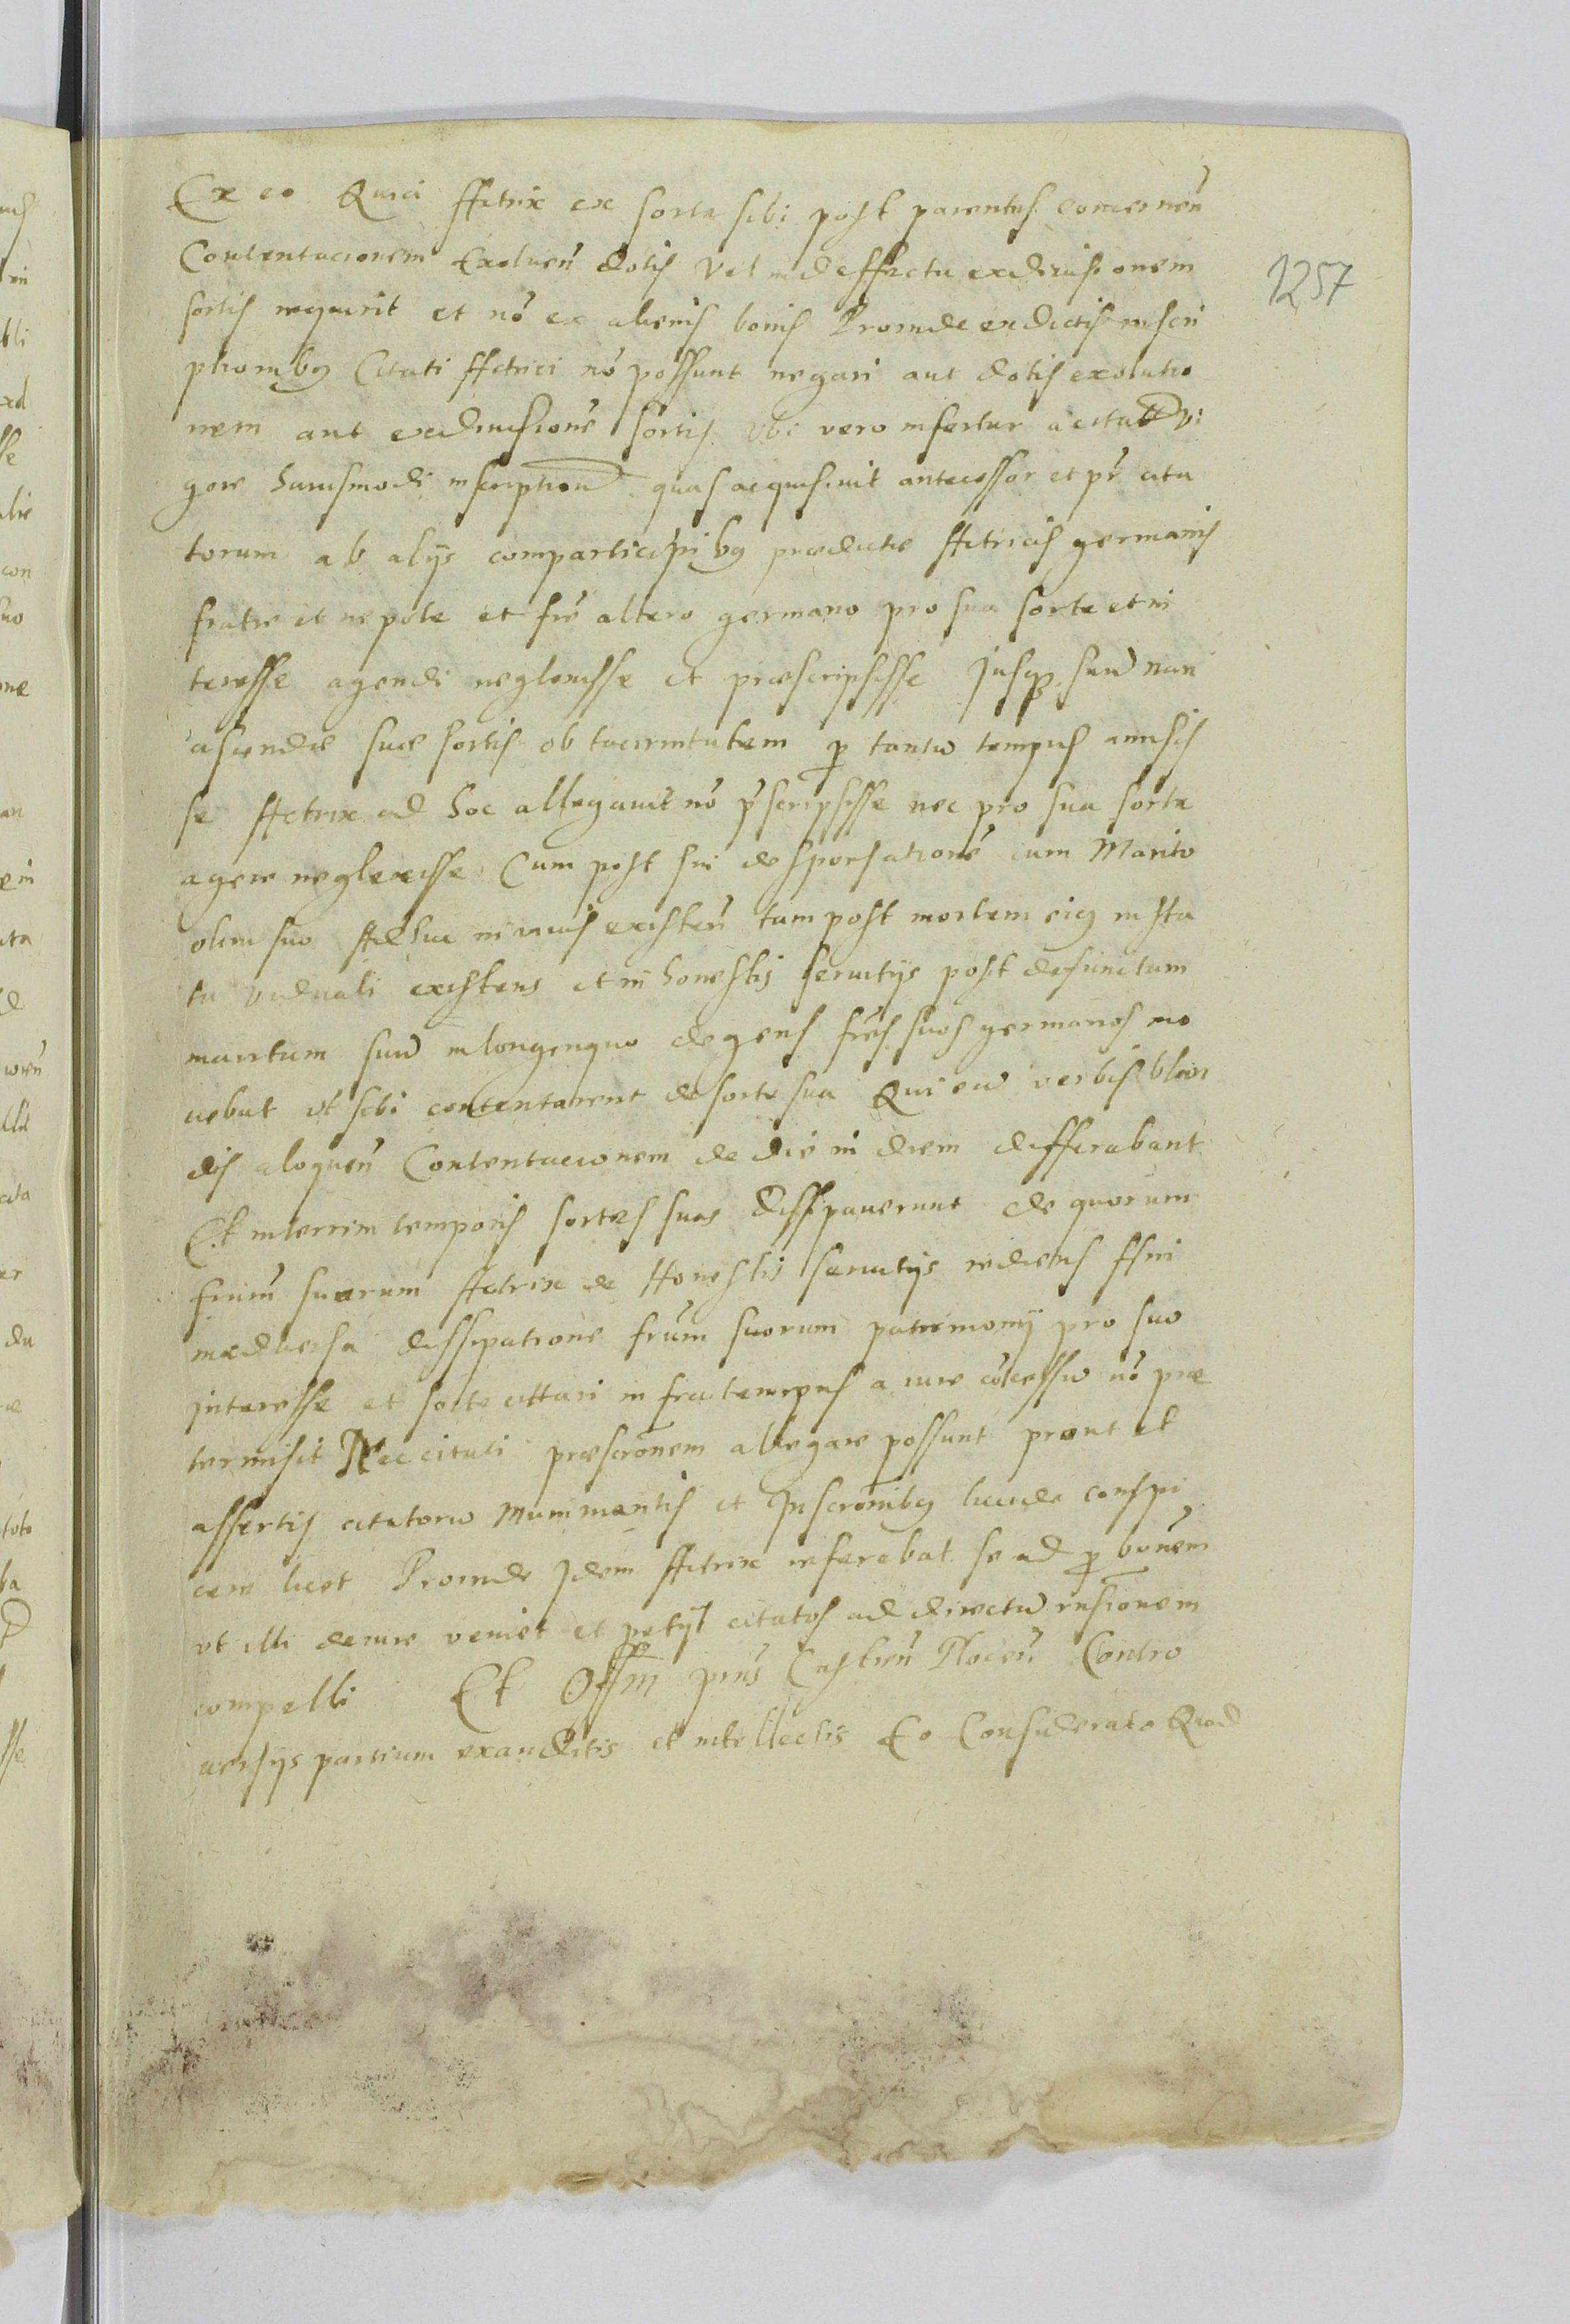 Ex eo Quia Actrix ex sorte sibi post parentes concerneñ
Contentacionem Exolueñ dotis Vel in deffectu exdiuisionem
sortis requirit et nõ ex alienis bonis Proinde ex dictis inscri
ptionibus Citati Actrici nõ possunt negari aut dotis exolutio
nem aut exdiuisionẽ sortis. Vbi vero infertur a citatis vi
gore huiusmodi inscriptionũ quas acquisiuit antecessor et pr̃ cita
torum ab alijs comparticipibus prædictæ Actricis germanis
fratre et nepote et frẽ altero germano pro sua sorte et in
teresse agendi neglexisse et præscripsisse Jusque suũ nan
ciscendæ suæ sortis ob taciturnitatem per tantũ tempus amisis
se Actrix ad hoc allegauit nõ p̃scripsisse nec pro sua sorte
agere neglexisse Cum post sui desponsationẽ cum Marito
olim suo Adhuc in viuis existeñ tum post mortem eius in sta
tu viduali existens et in honestis seruitijs post defunctum
maritum suũ in longinquo degens frẽs suos germanos mo
uebat vt sibi contentarent de sorte sua Qui eã verbis blan
dis aloqueñ Contentacionem de die in diem differebant
Et interim temporis sortes suas dissipauerunt de quorum
frũm suorum Actrix de Honestis seruitijs rediens
inaduersa dissipatione frũm suorum patrimonij pro suo
interesse et sorte cittari infra tempus a iure cõcessũ nõ præ
termisit Nec citati præscr̃onem allegare possunt prout et
assertis citatorũ Munimentis et Inscr̃onibus lucide conspi
cere licet Proinde Jdem Actrix referebat se ad p bõnem
vt illi de iure veniet et petijt citatos ad directũ rñsionem
compelli Et Offm̃ pñs CastreñPloceñ Contro
uersijs partium exauditis et intellectis Eo Considerato Quod
1257